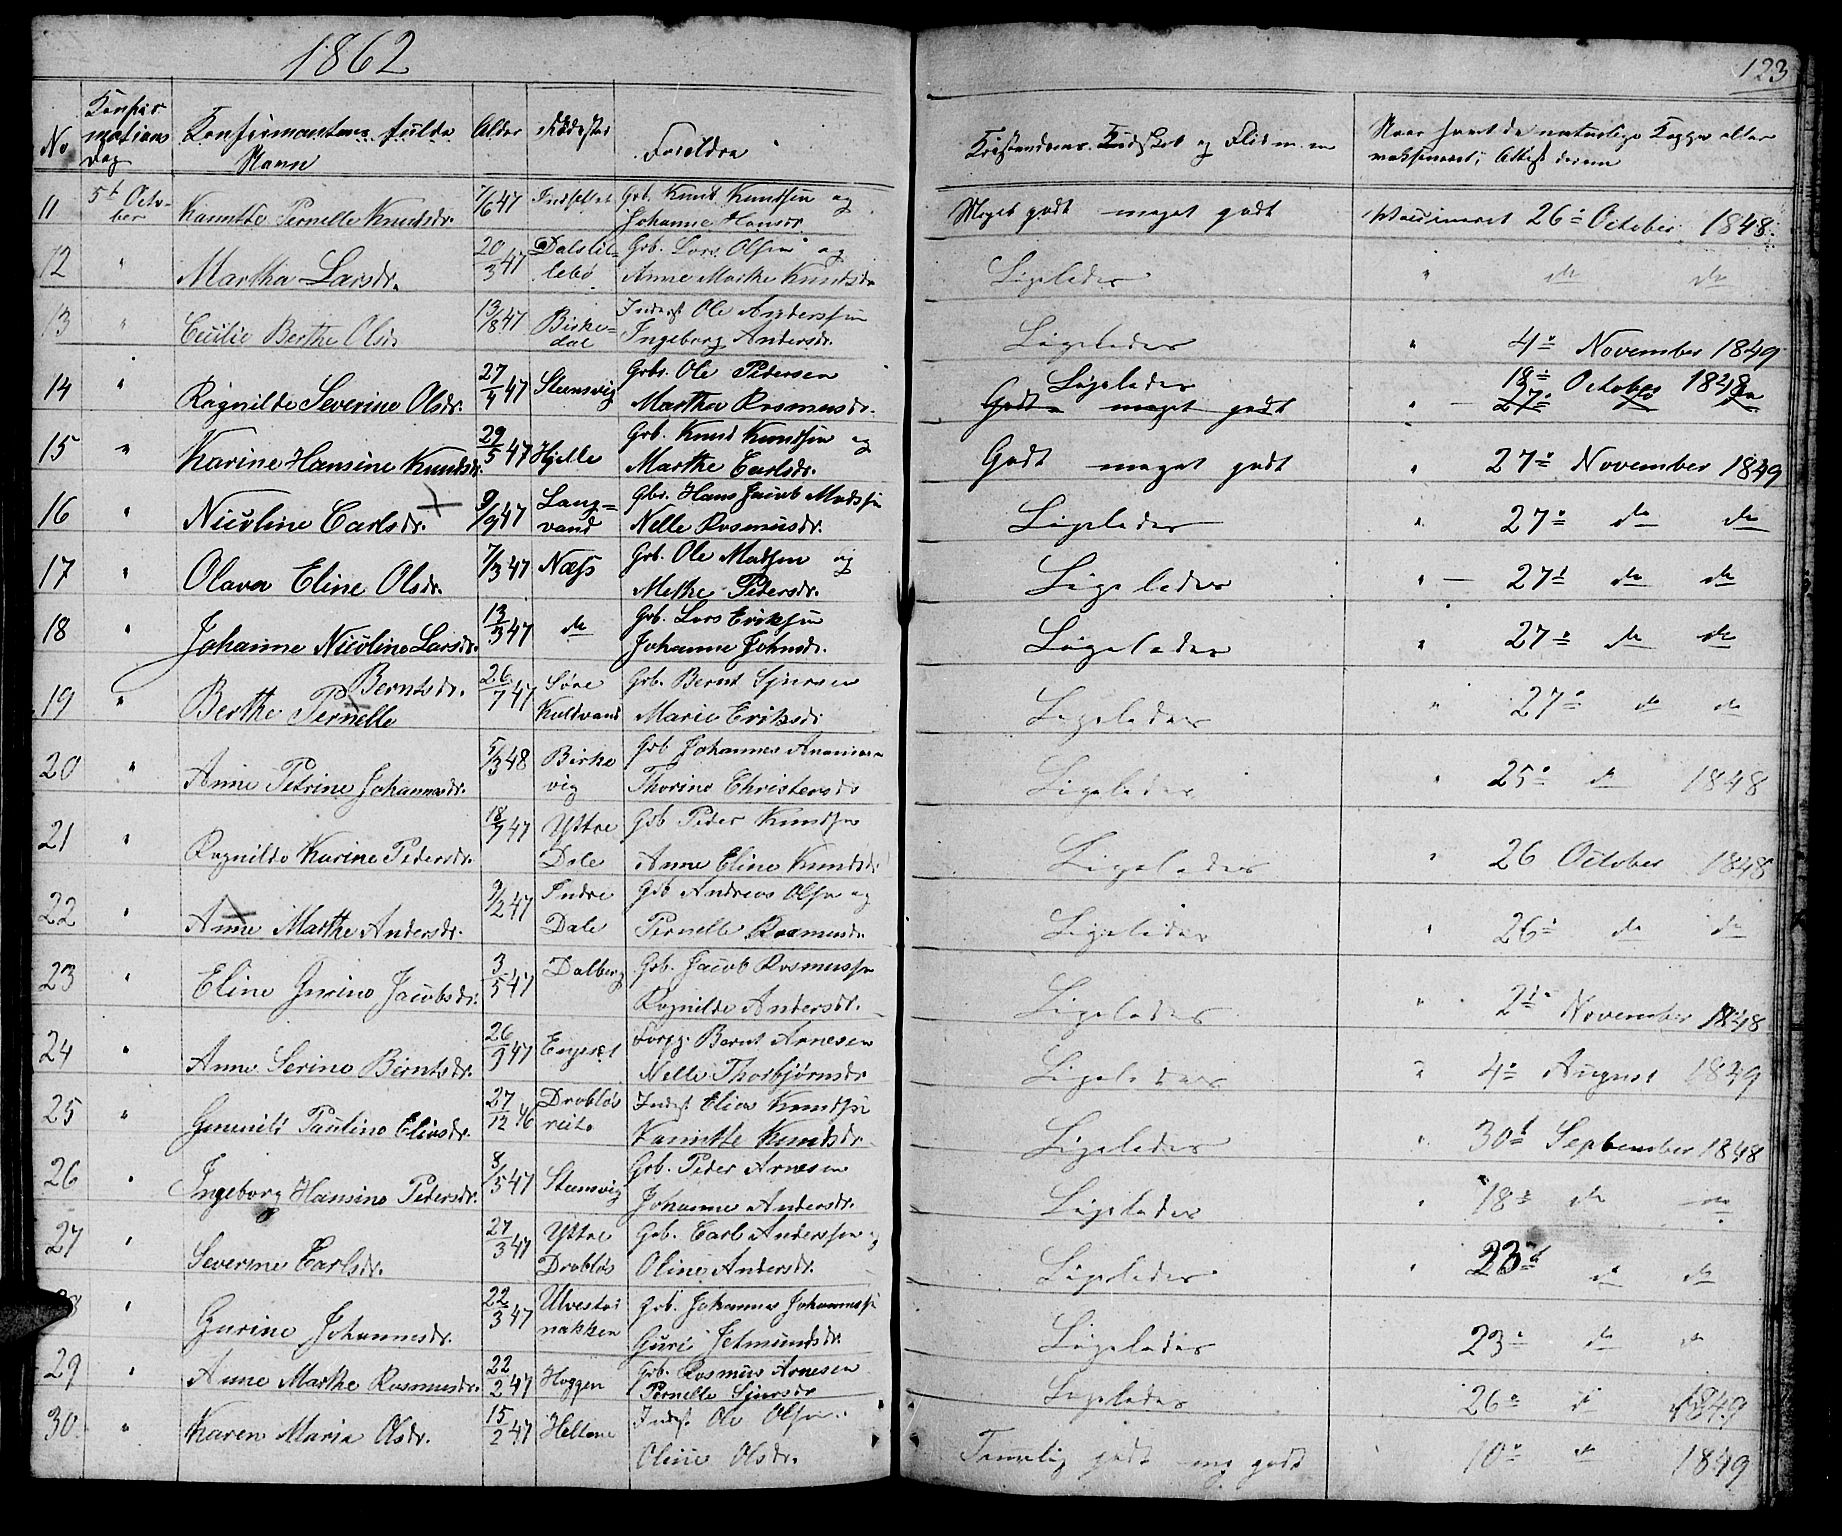 1862
123
No
Konfir
mations
Dag
Konfirmantens fulde
Navn
Alder
Fødested
Forældre
Kristendoms Kundskab og Flid m. m
Naar havt de naturlige Kopper eller
vaksineret; Attest derom
11 5t Octo- Kanutte Pernelle Knudsdr. 7/6 47 Indsetet Grb. Knud Knudsen og Meget godt meget godt Vaccineret 26de October 1848.
ber Johanne Hansdr.
12 " Martha Larsdr. 20/3 47 Dalslil- Grb. Lars Olsen og Ligeledes " do do
lebø Anne Marthe Knudsdr
13 " Cecilie Berthe Olsdr 13/8 47 Birke- Inderst Ole Anderssen Ligeledes " 4de November 1849
dal Ingeborg Andersdr.
14 " Ragnilde Severine Olsdr. 27/4 47 Steensvig Grb. Ole Pedersen Ligeledes 18de October 1848
Marthe Rasmusdr. Godt meget godt " 27de do do
15 " Karine Hansine Knudsdr. 29/5 47 Hjelle Grb. Knud Knudsen og Godt meget godt " 27de November 1849
Marthe Carlsdr.
16 " Nicoline Carlsdr. 9/9 47 Lang- Gbr. Hans Jacob Madssen Ligeledes " 27de do do
vand Nelle Rasmusdr.
17 " Olava Eline Olsdr. 7/3 47 Næss Grb. Ole Madsen og Ligeledes " 27de do do
Methe Pedersdr.
18 " Johanne Nicoline Larsdr. 13/3 47 do Grb. Lars Eriksen Ligeledes " 27de do do
Johanne Johnsdr.
19 " Berntsdr. 26/7 47 Søre Grb. Bernt Sjursen Ligeledes " 27de do do
Berthe Pernelle Koldvand Marie Eriksdr
20 " Anne Petrine Johannesdr. 5/3 48 Birke Grb Johannes Ligeledes " 25de do 1848
vig Thorine Christensdr
21 " Ragnilde Karine Pedersdr. 18/7 47 Ystre Grb Peder Knudsen Ligeledes " 26 October 1848
Dale Anne Eline Knudsdr
22 " Anne Marthe Andersdr. 9/2 47 Indre Grb Andreas Olsen og Ligeledes " 26de do do
Dale Pernelle Rasmusdr
23 " Eline Gurine Jacobsdr. 3/5 47 Dalberg Grb. Jacob Rasmussen Ligeledes " 2de November 1848
Ragnilde Andersdr.
24 " Anne Serine Berntsdr. 26/9 47 Engeset Forpg. Bernt Arnesen Ligeledes " 4de August 1849
Nelle Thorbjørnsdr
25 " Gunnild Pauline Eliasdr. 27/12 46 Drabløs Inderst Elias Knudsen Ligeledes " 30te September 1848
reit. Kanutte Knudsdr
26 " Ingeborg Hansine Pedersdr. 8/5 47 Steensvig Grb. Peder Arnesen Ligeledes " 18de do do
Johanne Andersdr.
27 " Severine Carlsdr. 27/3 47 Ystre Grb. Carl Anderssen og Ligeledes " 23de do do
Drabløs Oline Andersdr.
28 " Gurine Johannesdr. 22/3 47 Ulvestad Grb. Johannes Johannessen Ligeledes 23de do do
nakken Guri Jetmundsdr.
29 " Anne Marthe Rasmusdr. 22/2 47 Haggen Grb. Rasmus Arnesen Ligeledes 26de do 1849
Pernelle Sjursdr
30. " Karen Maria Olsdr. 15/2 47 Hellene Inderst Ole Olsen. Temmelig godt mg godt 10de do 1849
Oline Olsdr.